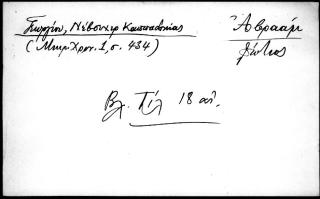 Γεωργίου, Νέβσεχιρ Καππαδοκίας
Ἀβραάμ
(Μικρ. Χρον. 1, σ. 434)
Φώτιος
Βλ. Πίλ 18 αἰ.